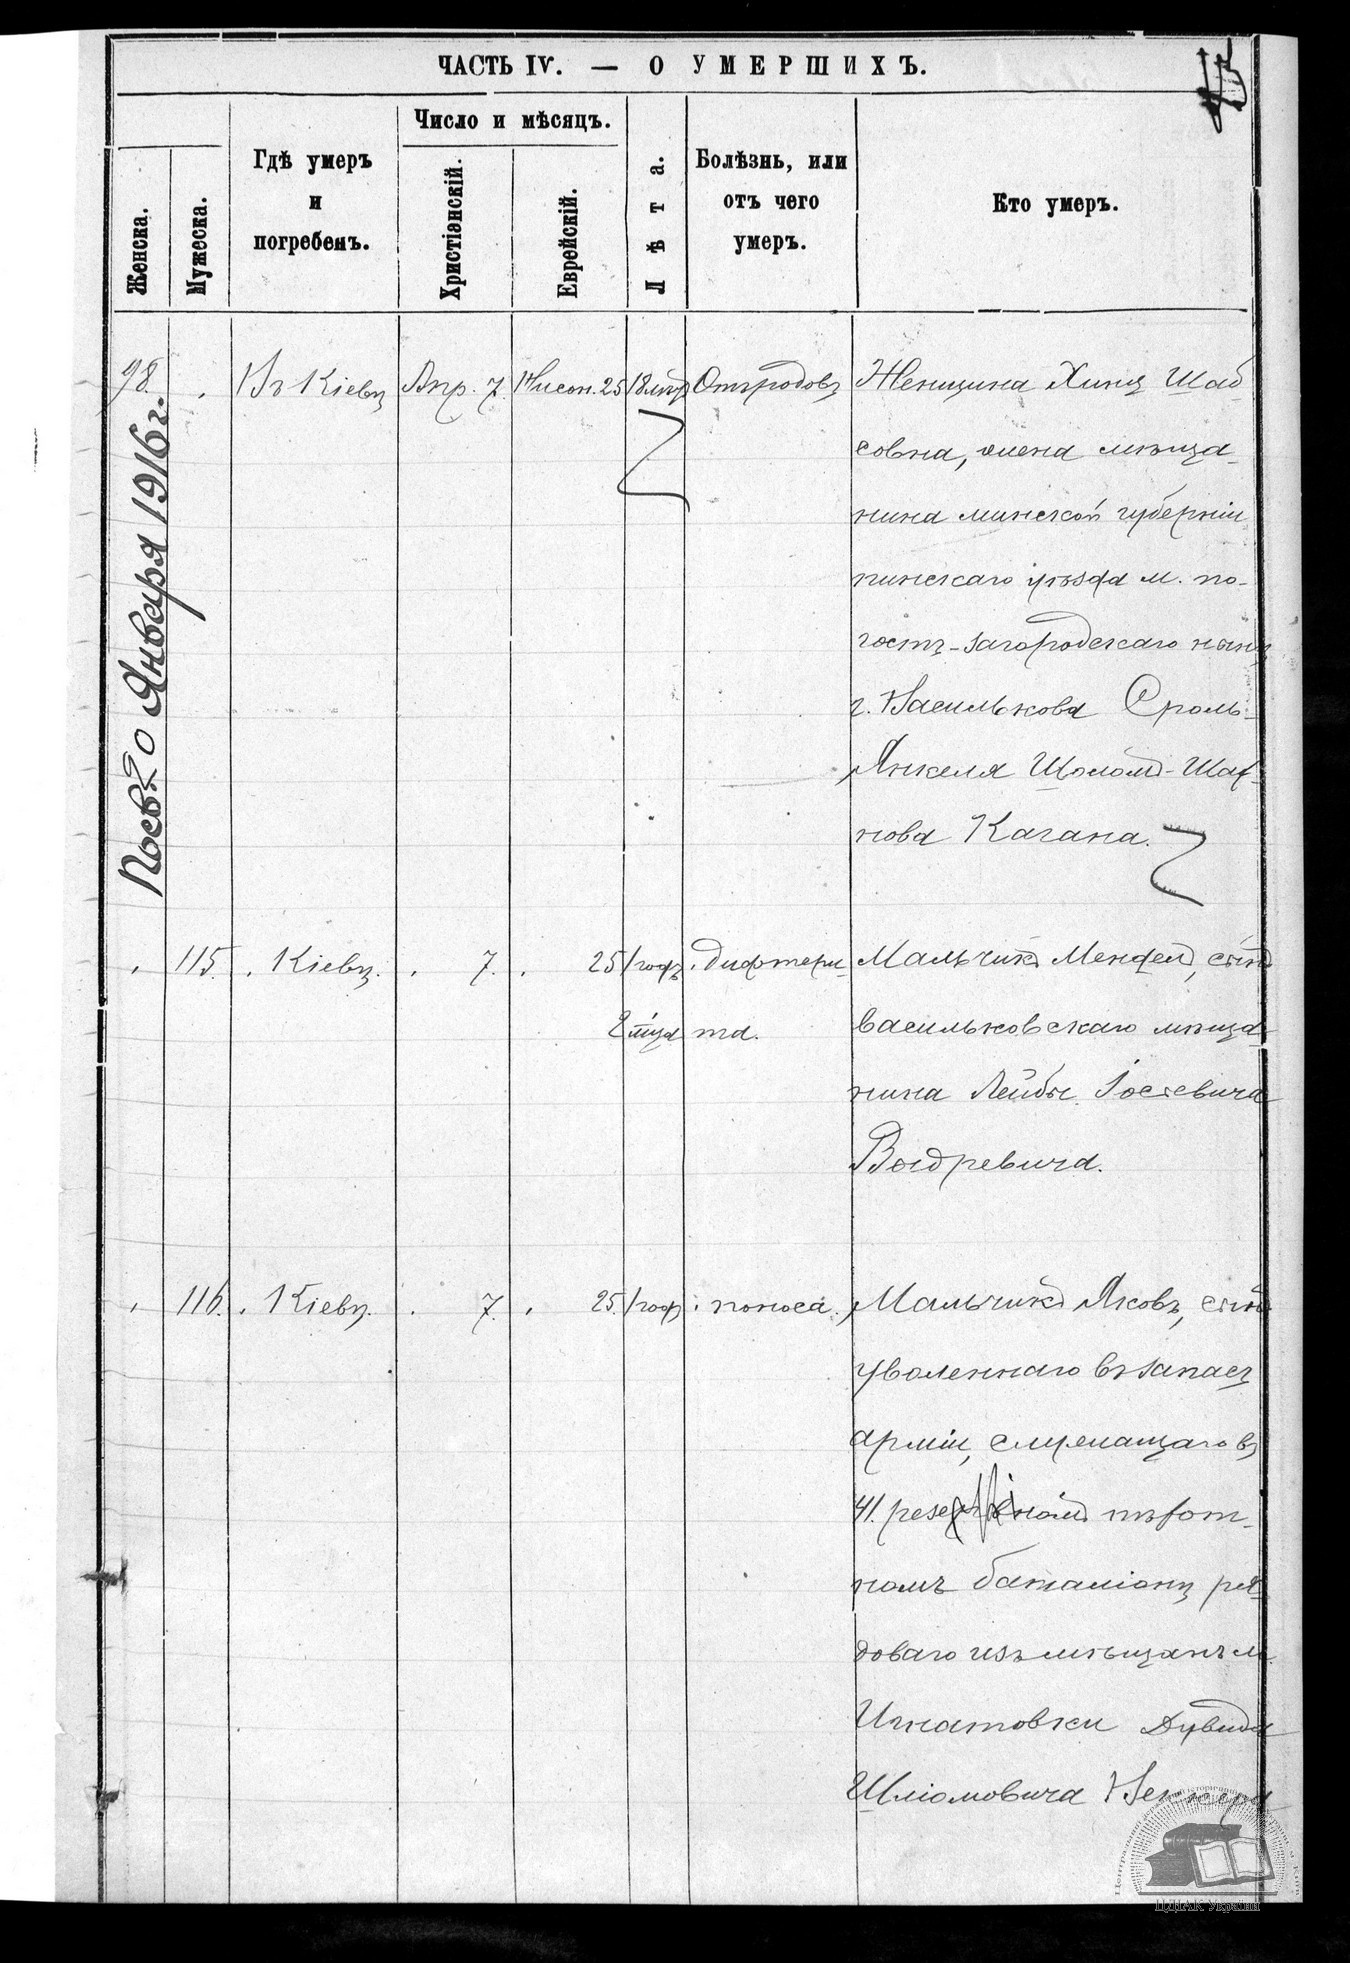 ЧАСТЬ IV. — О УМЕРШИХЪ.
Женска.
Мужеска.
Гдѣ умеръ
и
погребенъ.
Число и мѣсяцъ.
Христіанскій.
Еврейскій.
Лѣта.
Болѣзнь, или
отъ чего
умеръ.
Кто умеръ.
98. Въ Кіевѣ Апр. 7. Нисон. 25 18 лѣтъ Отъ родовъ Женщина Хина Шаб-
совна, жена мѣща-
нина минской губерніи
пинскаго уѣзда м. по-
гостъ-загородскаго нынѣ
г. Василькова Сроль-
Янкеля Шолома-Шах-
нова Кагана.
января 1916 г.
115. Кіевѣ. 7. 25 1 годъ дифтери- Мальчикъ Мендель, сынъ
2 м-ца та. васильковскаго мѣща-
нина Лейбы
116. Кіевѣ. 7. 25. 1 годъ поноса. Мальчикъ Яковъ, сынъ
уволеннаго въ запасъ
арміи, служащаго въ
41. резервномъ пѣхот-
номъ баталіонѣ ря-
доваго изъ мѣщанъ м.
Игнатовки Дувида
Шліомовича
ЦДІАК України